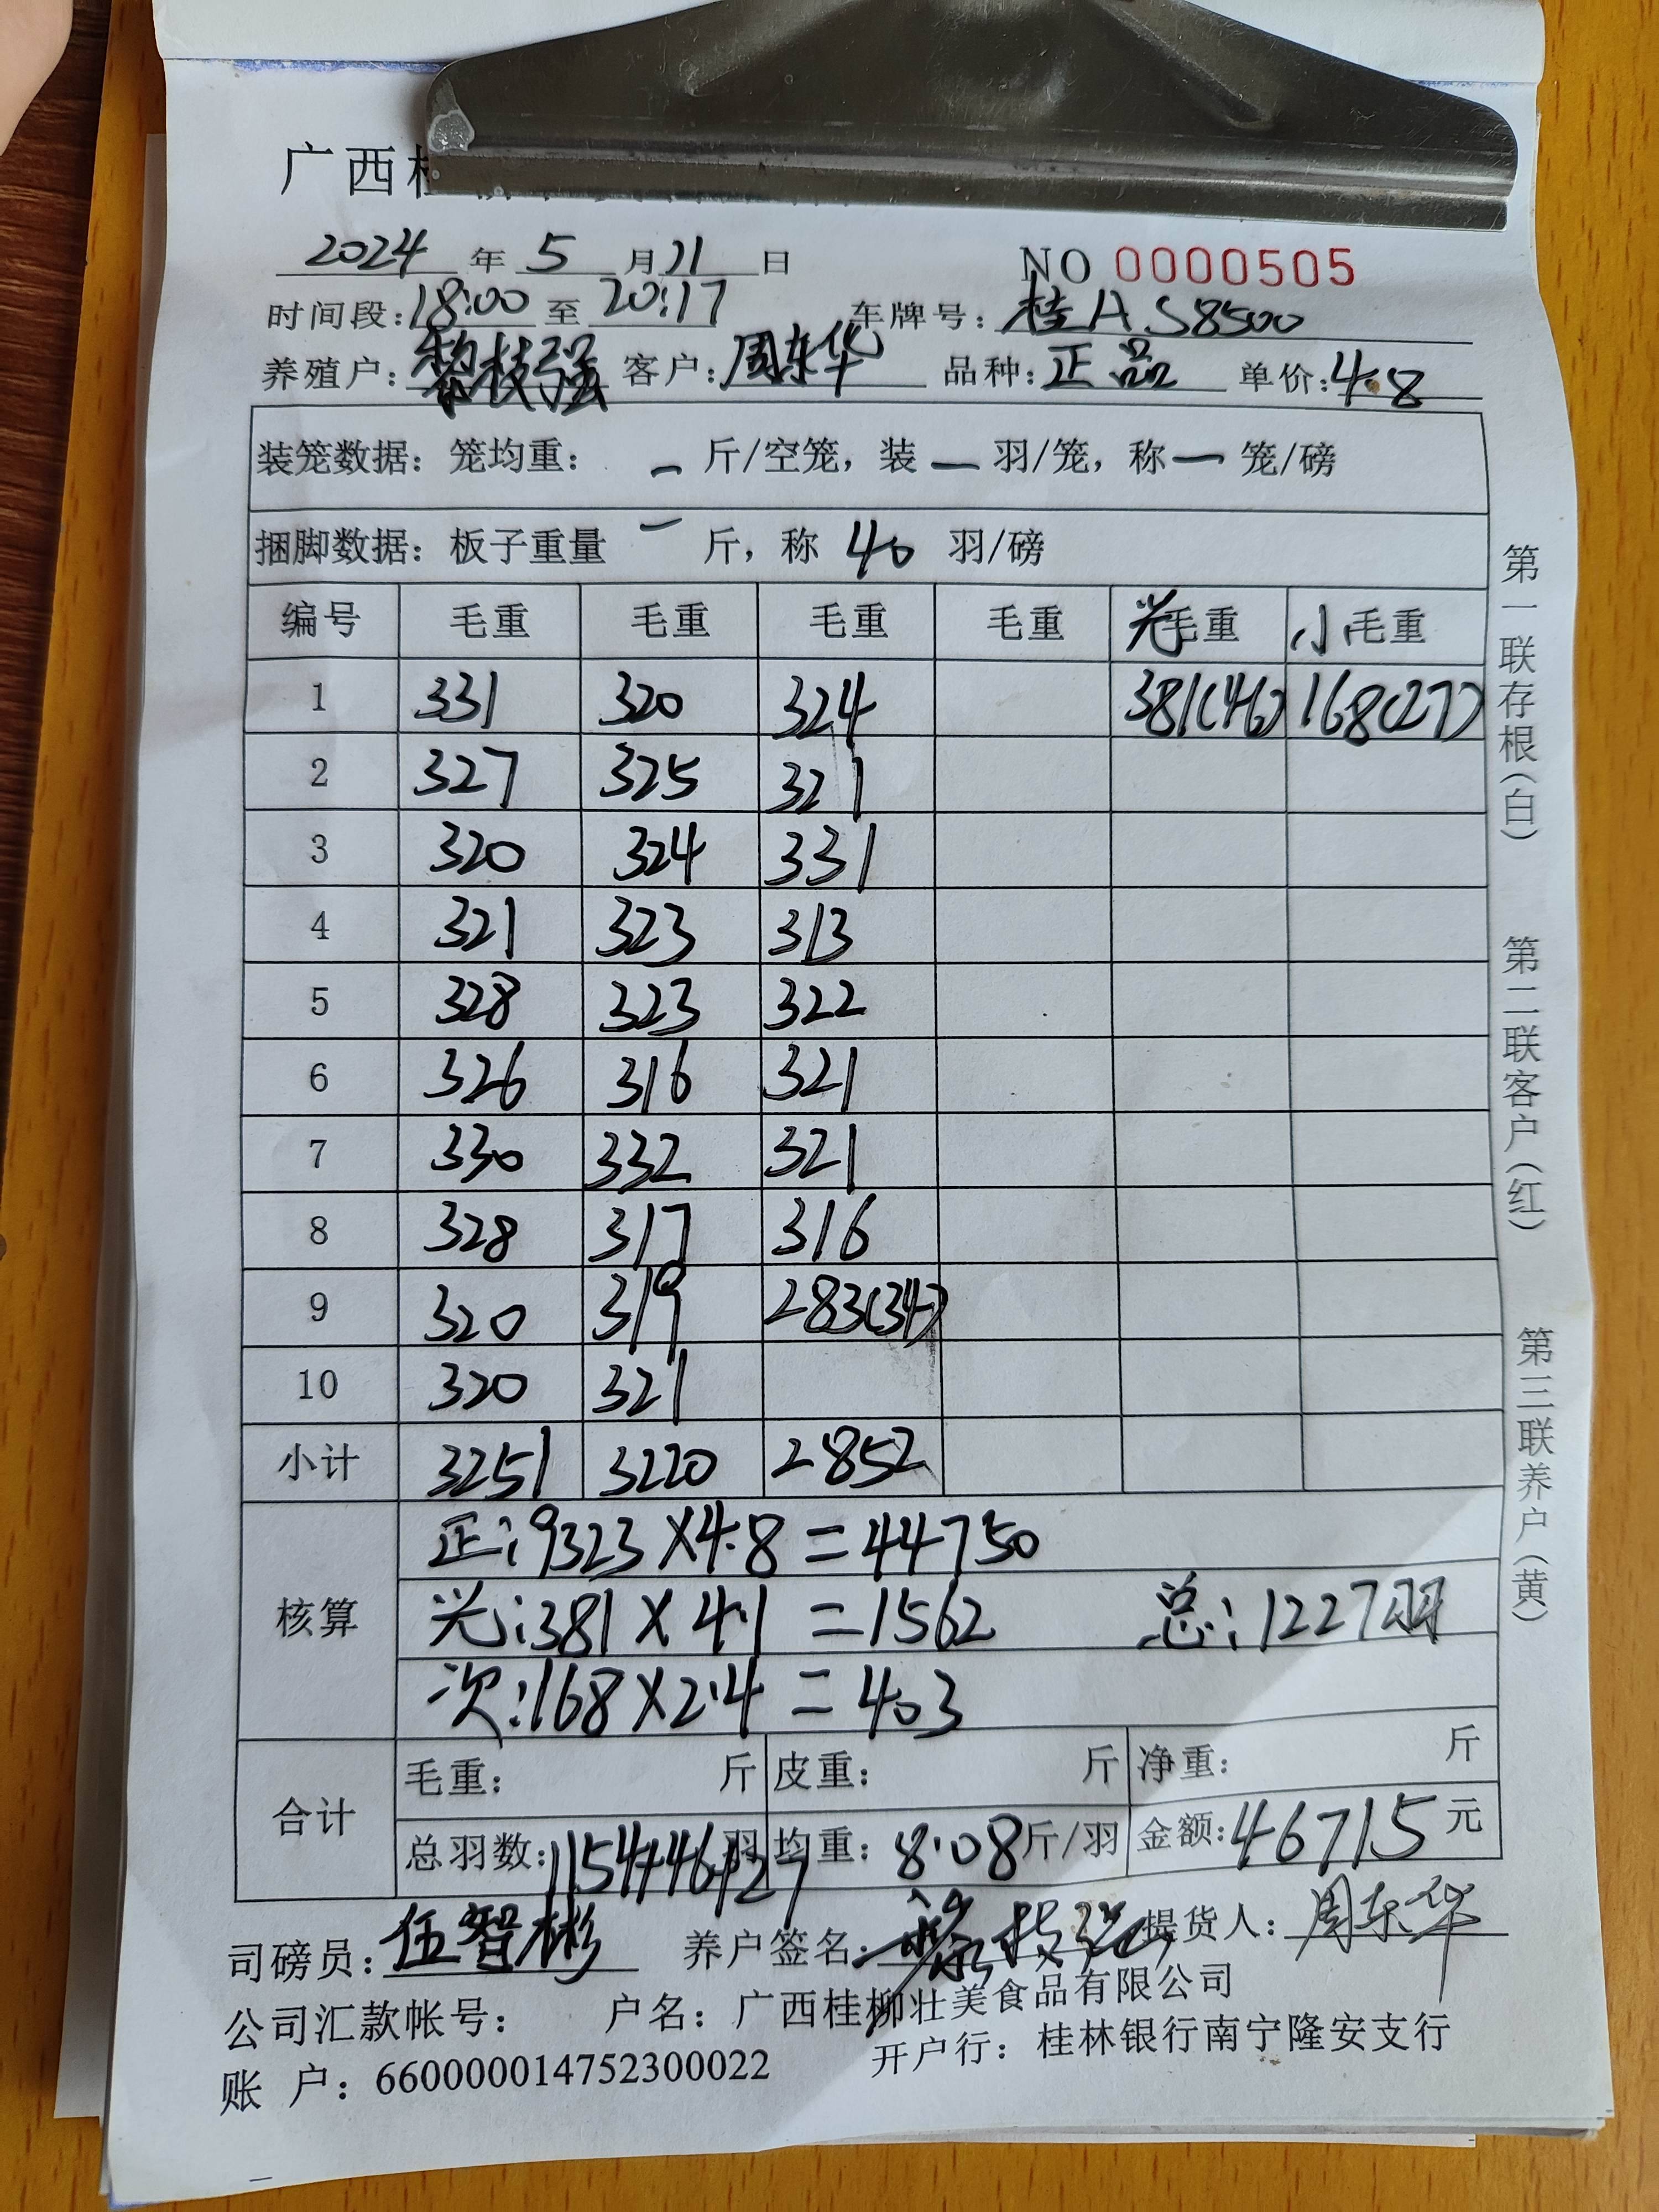 广西桂
2024 年 5 月 11 日 NO 0000505
时间段:18:00 至 20:17 车牌号: 桂A S8500
养殖户: 黎枝强 客户: 周东华 品种: 正品 单价: 4.8
装笼数据: 笼均重: — 斤/空笼, 装 — 羽/笼, 称 — 笼/磅
捆脚数据: 板子重量 — 斤, 称 40 羽/磅
编号 毛重 毛重 毛重 毛重 光毛重 小毛重
1 331 320 324 381(46) 168(27)
2 327 325 321
3 320 324 331
4 321 323 313
5 328 323 322
6 326 316 321
7 330 332 321
8 328 317 316
9 320 319 283(34)
10 320 321
小计 3251 3220 2852
核算
正:9323×4.8=44750
光:381×4.1=1562 总:1227羽
次:168×2.4=403
合计
毛重: 斤 皮重: 斤 净重: 斤
总羽数:1154+46+27羽 均重: 8.08斤/羽 金额:46715元
司磅员: 伍智彬 养户签名: 黎枝强 提货人: 周东华
公司汇款帐号: 户名: 广西桂柳壮美食品有限公司
账 户: 660000014752300022 开户行: 桂林银行南宁隆安支行
第一联存根(白) 第二联客户(红) 第三联养户(黄)